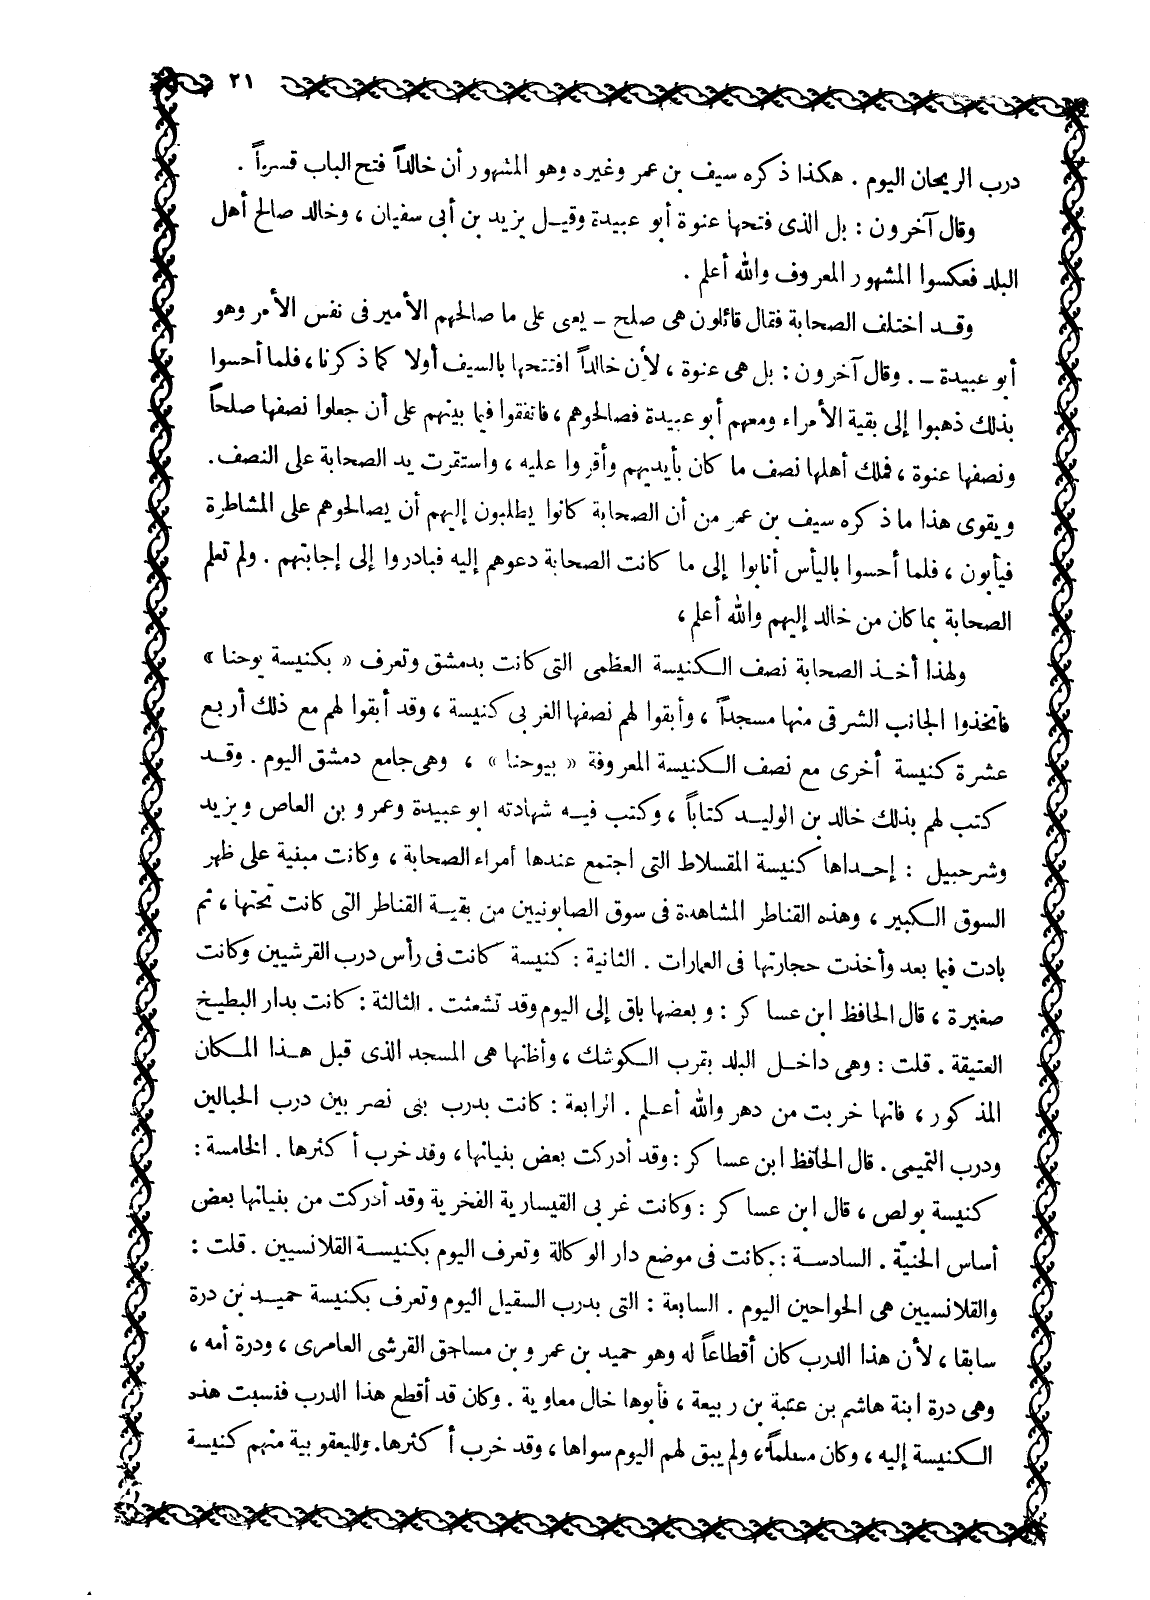 ٢١
درب الريحان اليوم . هكذا ذكره سيف بن عمر وغيره وهو المشهور أن خالداً فتح الباب قسراً .
وقال آخرون : بل الذى فتحها عنوة أبو عبيدة وقيل يزيد بن أبى سفيان ، وخالد صالح أهل
البلد فعكسوا المشهور المعروف والله أعلم .
وقد اختلف الصحابة فقال قائلون هى صلح ـ يعى على ما صالحهم الأمير فى نفس الأمر وهو
أبو عبيدة ـ . وقال آخرون : بل هى عنوة ، لأن خالداً افتتحها بالسيف أولا كما ذكرنا ، فلما أحسوا
بذلك ذهبوا إلى بقية الأمراء ومعهم أبو عبيدة فصالحوهم ، فاتفقوا فيما بينهم على أن جعلوا نصفها صلحاً
ونصفها عنوة ، فملك أهلها نصف ما كان بأيديهم وأقروا عليه ، واستقرت يد الصحابة على النصف .
ويقوى هذا ما ذكره سيف بن عمر من أن الصحابة كانوا يطلبون إليهم أن يصالحوهم على المشاطرة
فيأبون ، فلما أحسوا باليأس أنابوا إلى ما كانت الصحابة دعوهم إليه فبادروا إلى إجابتهم . ولم تعلم
الصحابة بما كان من خالد إليهم والله أعلم ،
ولهذا أخذ الصحابة نصف الكنيسة العظمى التى كانت بدمشق وتعرف « بكنيسة يوحنا »
فاتخذوا الجانب الشرقى منها مسجداً ، وأبقوا لهم نصفها الغربى كنيسة ، وقد أبقوا لهم مع ذلك أربع
عشرة كنيسة أخرى مع نصف الكنيسة المعروفة « بيوحنا » ، وهى جامع دمشق اليوم . وقد
كتب لهم بذلك خالد بن الوليد كتاباً ، وكتب فيه شهادته ابو عبيدة وعمرو بن العاص ويزيد
وشرحبيل : إحداها كنيسة المقسلاط التى اجتمع عندها أمراء الصحابة ، وكانت مبنية على ظهر
السوق الكبير ، وهذه القناطر المشاهدة فى سوق الصابونيين من بقية القناطر التى كانت تحتها ، ثم
بادت فيما بعد وأخذت حجارتها فى العمارات . الثانية : كنيسة كانت فى رأس درب القرشيين وكانت
صغيرة ، قال الحافظ ابن عساكر : وبعضها باق إلى اليوم وقد تشعثت . الثالثة : كانت بدار البطيخ
العتيقة . قلت : وهى داخل البلد بقرب الكوشك ، وأظنها هى المسجد الذى قبل هذا المكان
المذكور ، فانها خربت من دهر والله أعلم . الرابعة : كانت بدرب بنى نصر بين درب الحبالين
ودرب التميمى . قال الحافظ ابن عساكر : وقد أدركت بعض بنيانها ، وقد خرب أكثرها . الخامسة :
كنيسة بولص ، قال ابن عساكر : وكانت غربى القيسارية الفخرية وقد أدركت من بنيانها بعض
أساس الحنيّة . السادسة : كانت فى موضع دار الوكالة وتعرف اليوم بكنيسة القلانسيين . قلت :
والقلانسيين هى الحواحين اليوم . السابعة : التى بدرب السقيل اليوم وتعرف بكنيسة حميد بن درة
سابقا ، لأن هذا الدرب كان أقطاعاً له وهو حميد بن عمرو بن مساحق القرشى العامرى ، ودرة أمه ،
وهى درة ابنة هاشم بن عتبة بن ربيعة ، فأبوها خال معاوية . وكان قد أقطع هذا الدرب فنسبت هذه
الكنيسة إليه ، وكان مسلماً ، ولم يبق لهم اليوم سواها ، وقد خرب أكثرها . ولليعقوبية منهم كنيسة